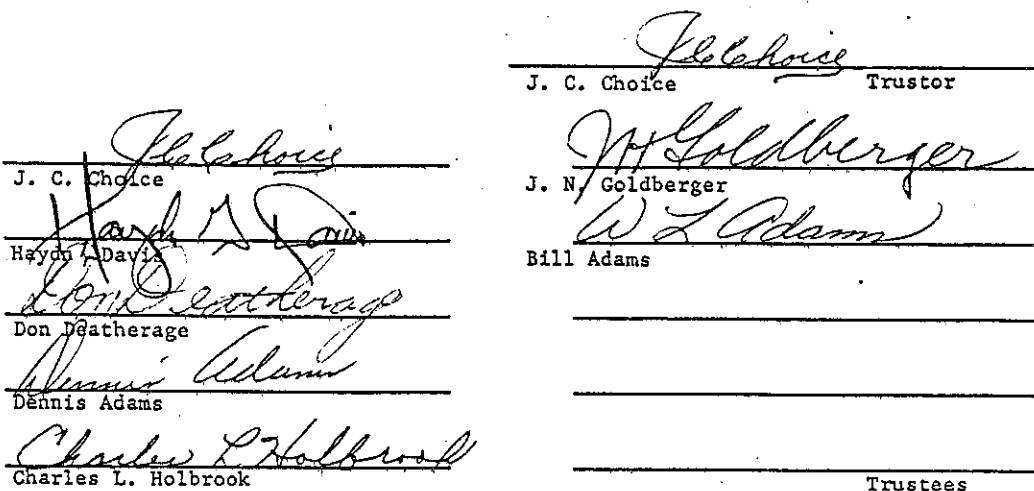 JCChoice
J. C. Choice
Haydn G Davis
Haydn Davis
Don Deatherage
Don Deatherage
Dennis Adams
Dennis Adams
Charles L Holbrook
Charles L. Holbrook
JCChoice
J. C. Choice Trustor
JN Goldberger
J. N. Goldberger
W L Adams
Bill Adams
Trustees